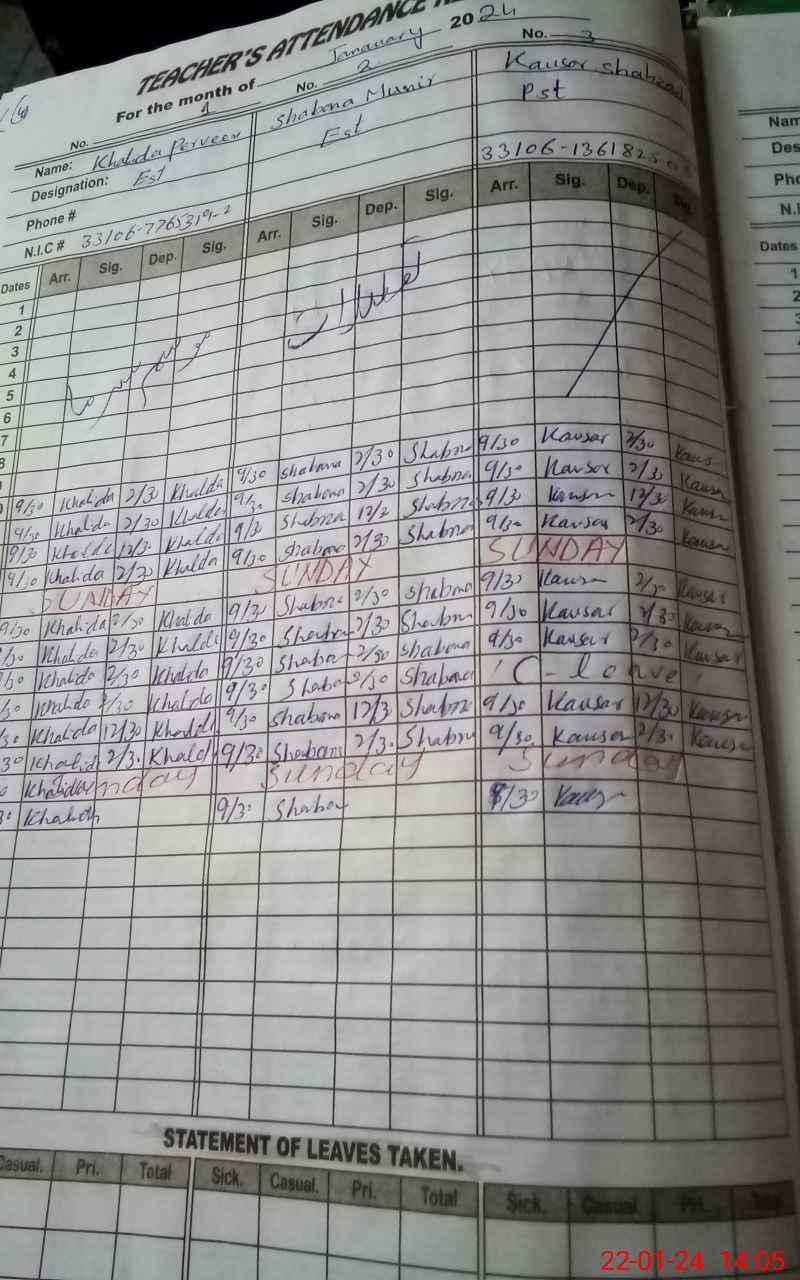 TEACHER'S ATTENDANCE
For the month of Janauary 2024
No. 1 No. 2 No. 3
Name: Khalida Perveen Shabana Munir Kausar Shabzad
Designation: Est Est Pst
Phone #
N.I.C # 33106-7765319-2 33106-1361825
Dates Arr. Sig. Dep. Sig. Arr. Sig. Dep. Sig. Arr. Sig. Dep. Sig.
1
2
3
4
5
6
7
8
9/30 Khalida 2/30 Khalda 9/30 shabana 2/30 Shabna 9/30 Kausar 2/30 Kaus
9/30 Khalida 2/30 Khalda 9/30 shabana 2/30 Shabna 9/30 Kausar 2/30 Kausar
9/30 Khalda 12/3 Khalda 9/30 Shabna 12/2 Shabna 9/30 Kausar 12/3 Kausar
9/30 Khalida 2/30 Khalda 9/30 shabana 2/30 Shabna 9/30 Kausar 2/30 Kausar
SUNDAY SUNDAY SUNDAY
9/30 Khalida 2/30 Khalda 9/30 Shabna 2/30 shabana 9/30 Kausar 2/30 Kausar
/30 Khalida 2/30 Khalda 9/30 Shaban 2/30 Shaubna 9/30 Kausar 2/30 Kausar
/30 Khalida 2/30 Khalda 9/30 Shaba 2/30 shabana 9/30 Kausar 2/30 Kausar
/30 Khalida 2/30 Khalda 9/30 Shaba 2/30 Shabana C-leave
/30 Khalida 12/30 Khalda 9/30 Shabana 12/3 Shabna 9/30 Kausar 12/30 Kausar
30 Khalid 2/3. Khald 9/30 Shaban 2/3. Shabna 9/30 Kausar 2/3. Kausar
Khalida Sunday Sunday Sunday
30 Khalida 9/30 Shaban 8/30 Kausar
STATEMENT OF LEAVES TAKEN.
Casual. Pri. Total Sick. Casual. Pri. Total Sick. Casual. Pri. Total
Nam
Des
Pho
N.I
Dates
1
2
3
22-01-24 14:05